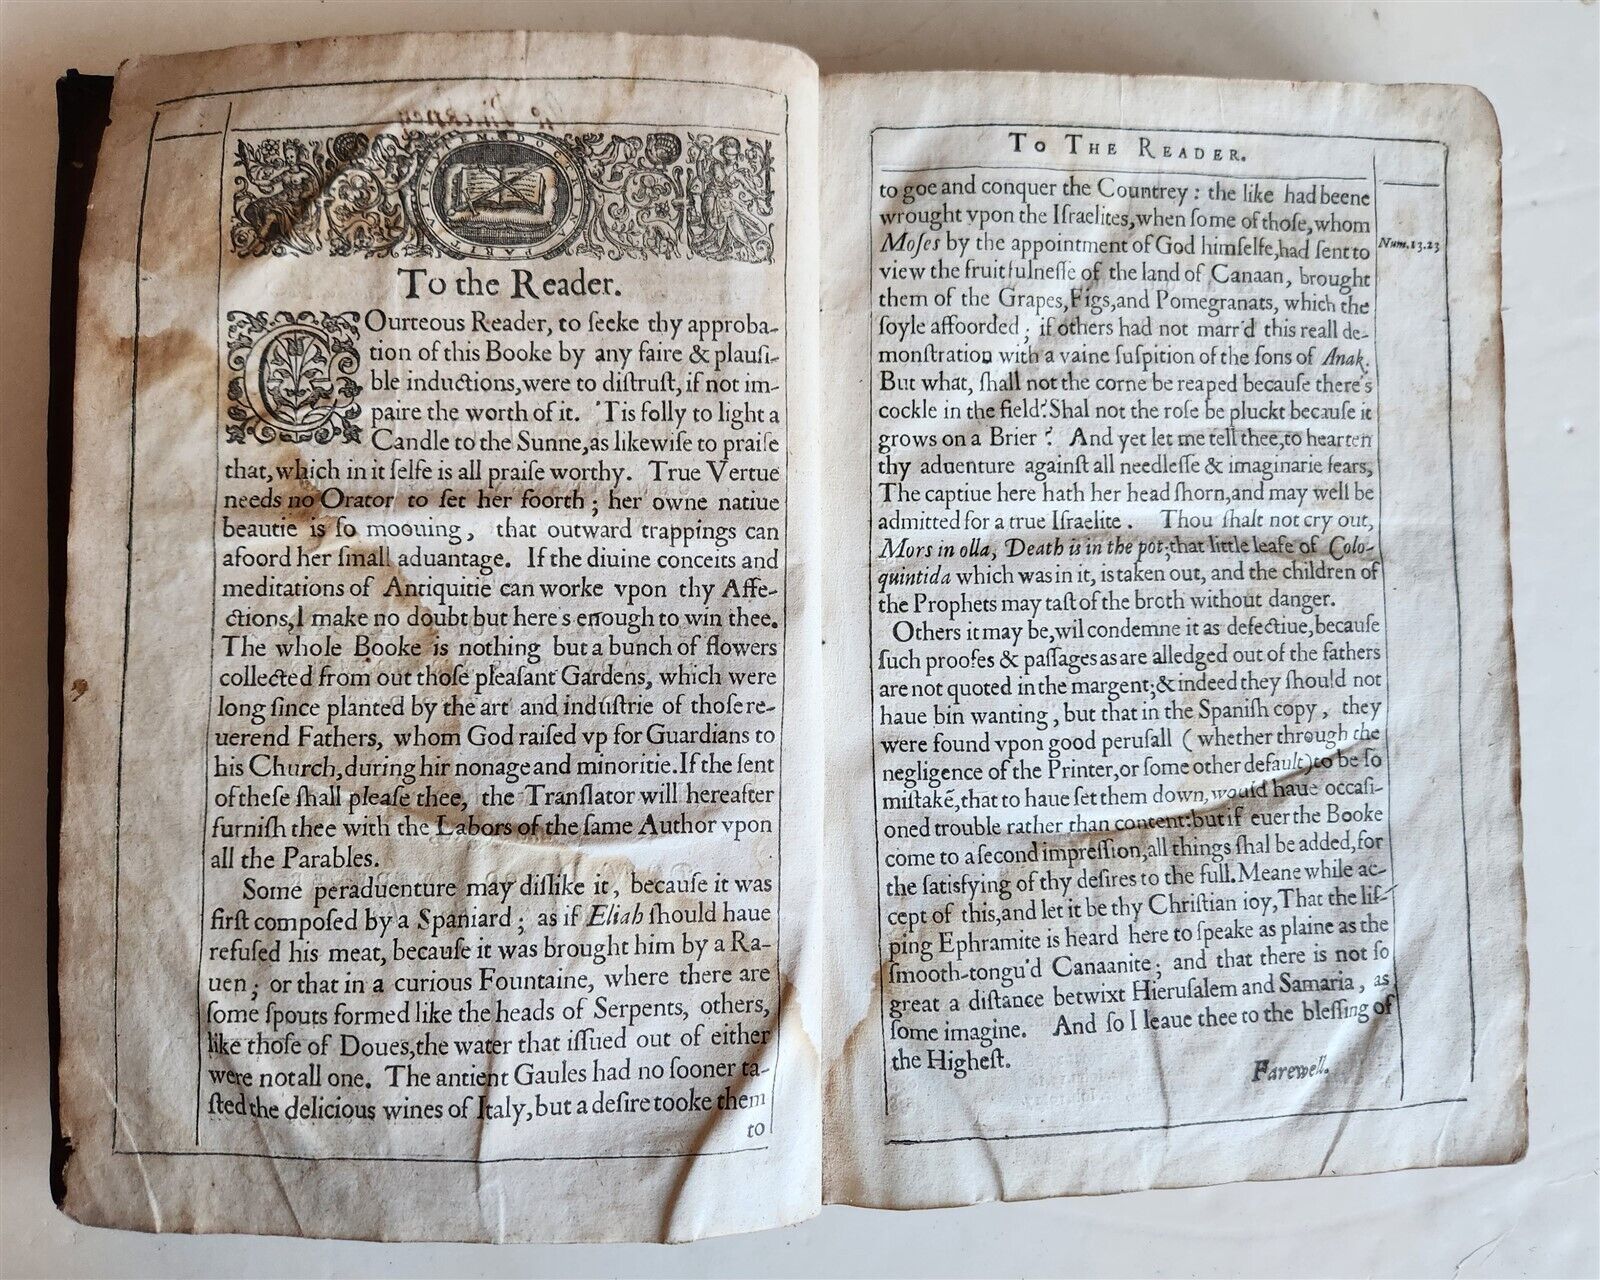 VIRTVTEM DOCTRINA PARIT
To the Reader.
COurteous Reader, to ſeeke thy approba-
tion of this Booke by any faire & plauſi-
ble inductions, were to diſtruſt, if not im-
paire the worth of it. 'Tis folly to light a
Candle to the Sunne, as likewiſe to praiſe
that, which in it ſelfe is all praiſe worthy. True Vertue
needs no Orator to ſet her foorth; her owne natiue
beautie is ſo moouing, that outward trappings can
afoord her ſmall aduantage. If the diuine conceits and
meditations of Antiquitie can worke vpon thy Affe-
ctions, I make no doubt but here's enough to win thee.
The whole Booke is nothing but a bunch of flowers
collected from out thoſe pleaſant Gardens, which were
long ſince planted by the art and induſtrie of thoſe re-
uerend Fathers, whom God raiſed vp for Guardians to
his Church, during hir nonage and minoritie. If the ſent
of theſe ſhall pleaſe thee, the Tranſlator will hereafter
furniſh thee with the Labors of the ſame Author vpon
all the Parables.
Some peraduenture may diſlike it, becauſe it was
firſt compoſed by a Spaniard; as if Eliah ſhould haue
refuſed his meat, becauſe it was brought him by a Ra-
uen; or that in a curious Fountaine, where there are
ſome ſpouts formed like the heads of Serpents, others,
like thoſe of Doues, the water that iſſued out of either
were not all one. The antient Gaules had no ſooner ta-
ſted the delicious wines of Italy, but a deſire tooke them
to
TO THE READER.
to goe and conquer the Countrey: the like had beene
wrought vpon the Iſraelites, when ſome of thoſe, whom
Moſes by the appointment of God himſelfe, had ſent to
Num.13.23
view the fruitfulneſſe of the land of Canaan, brought
them of the Grapes, Figs, and Pomegranats, which the
ſoyle affoorded; if others had not marr'd this reall de-
monſtration with a vaine ſuſpition of the ſons of Anak.
But what, ſhall not the corne be reaped becauſe there's
cockle in the field? Shal not the roſe be pluckt becauſe it
grows on a Brier? And yet let me tell thee, to hearten
thy aduenture againſt all needleſſe & imaginarie fears,
The captiue here hath her head ſhorn, and may well be
admitted for a true Iſraelite. Thou ſhalt not cry out,
Mors in olla, Death is in the pot; that little leafe of Colo-
quintida which was in it, is taken out, and the children of
the Prophets may taſt of the broth without danger.
Others it may be, wil condemne it as defectiue, becauſe
ſuch proofes & paſſages as are alledged out of the fathers
are not quoted in the margent; & indeed they ſhould not
haue bin wanting, but that in the Spaniſh copy, they
were found vpon good peruſall (whether through the
negligence of the Printer, or ſome other default) to be ſo
miſtakē, that to haue ſet them down, would haue occaſi-
oned trouble rather than content: but if euer the Booke
come to a ſecond impreſſion, all things ſhal be added, for
the ſatisfying of thy deſires to the full. Meane while ac-
cept of this, and let it be thy Chriſtian ioy, That the liſ-
ping Ephramite is heard here to ſpeake as plaine as the
ſmooth-tongu'd Canaanite; and that there is not ſo
great a diſtance betwixt Hieruſalem and Samaria, as
ſome imagine. And ſo I leaue thee to the bleſſing of
the Higheſt.
Farewell.